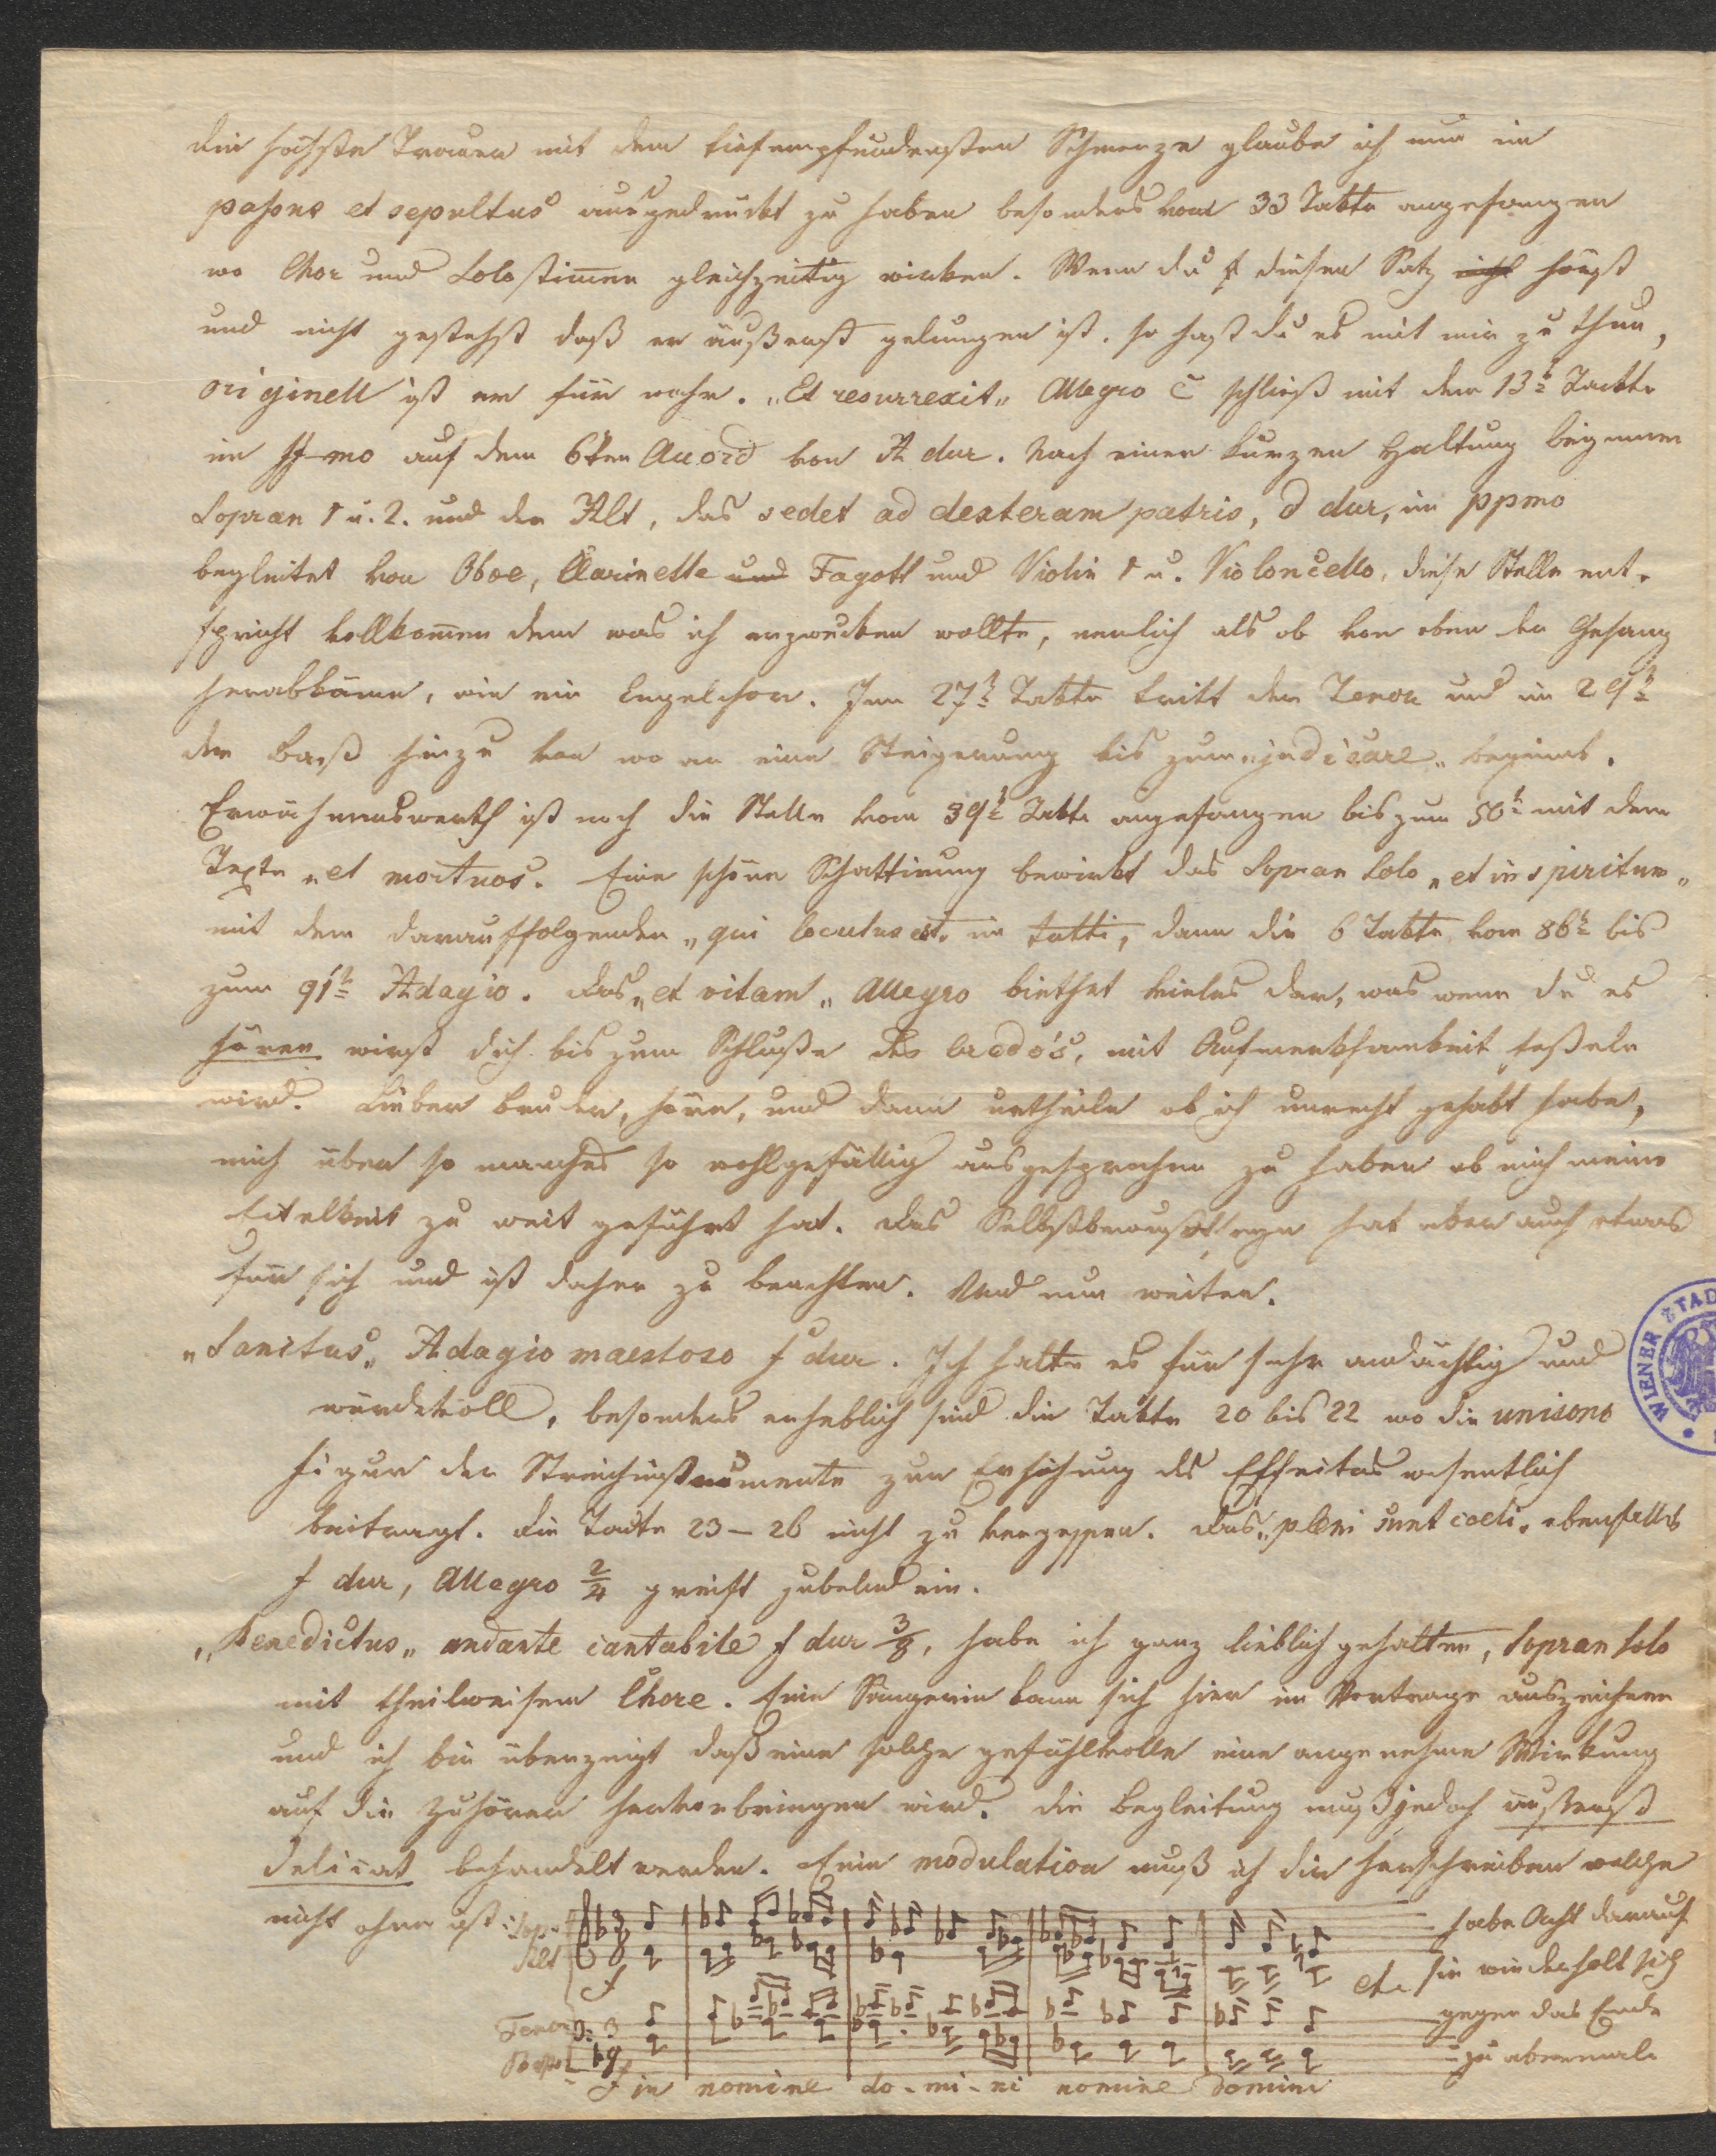 die höchste Trauer mit dem tiefempfundensten Schmerze glaube ich nun im
passus et sepultus ausgedrückt zu haben besonders vom 33 Takte angefangen
wo Chor und Solostimmen gleichzeitig wirken. Wenn du diesen Satz nicht hörst
und nicht gestehst daß er äußerst gelungen ist, so hast du es mit mir zu thun,
originell ist er für wahr. „Et resurrexit„ Allegro C schließt mit dem 13t Tackte
im ffmo auf dem 6ten Accord von A dur. Nach einer kurzen Haltung beginnen
Sopran 1 u. 2. und der Alt, das sedet ad dexteram patris, d dur, im ppmo
begleitet von Oboe, Clarinette und Fagott und Violin 1 u. Violoncello, diese Stelle ent-
spricht vollkommen dem was ich erzwecken wollte, nemlich als ob von oben der Gesang
herabkäme, wie ein Engelchor. Im 27t Takte tritt der Tenor und im 29t
der Baß hinzu von wo an eine Steigerung bis zum „judicare„ beginnt.
Erwähnenswerth ist noch die Stelle vom 39t Takte angefangen bis zum 50t mit dem
Texte „et mortuos. Eine schöne Schattirung bewirkt das Sopran Solo „et in spiritum„
mit dem darauffolgenden „qui locutus est„ im tutti, dann die 6 Takte vom 86t bis
zum 91t Adagio. Das „et vitam„ Allegro biethet vieles dar, was wenn du es
hören wirst dich bis zum Schluße des Credo's, mit Aufmerksamkeit feßeln
wird. Lieber Bruder, höre, und dann urtheile ob ich unrecht gehabt habe,
mich über so manches so wohlgefällig ausgesprochen zu haben ob mich meine
Eitelkeit zu weit geführt hat. Das Selbstbewustseyn hat aber auch etwas
für sich und ist daher zu beachten. Und nun weiter.
„Sanctus„ Adagio maestoso f dur. Ich halte es für sehr andächtig und
würdevoll, besonders erheblich sind die Takte 20 bis 22 wo die unisono
Figur der Streichinstrumente zur Erhöhung des Effectes wesentlich
beitragt. Die Tacte 23 – 26 nicht zu vergessen. Das „pleni sunt coeli„ ebenfalls
f dur, Allegro 2/4 greift jubelnd ein.
„Benedictus„ andante cantabile f dur 3/8, habe ich ganz lieblich gehalten, Sopran Solo
mit theilweisem Chore. Eine Sängerin kann sich hier im Vortrage auszeichnen
und ich bin überzeugt daß eine solche gefühlvolle eine angenehme Wirkung
auf die Zuhörer hervorbringen wird. Die Begleitung muß jedoch äußerst
delicat behandelt werden. Eine modulation muß ich dir herschreiben welche
nicht ohne ist: Sop.
Alt
f
etc
habe Acht darauf
sie wiederholt sich
gegen das Ende
zu abermals
Tenor
Baß
f in nomine do-mi-ni nomine Domini
WIENER STAD